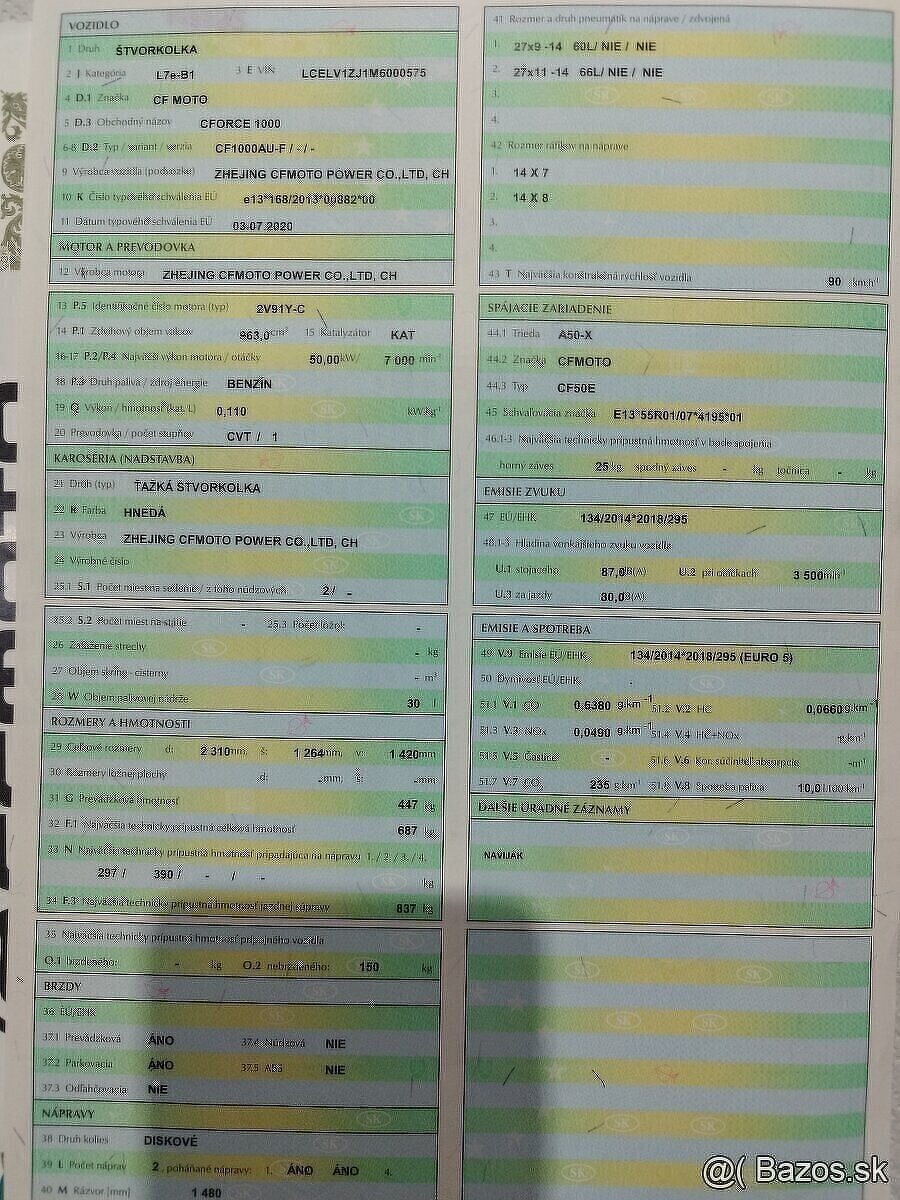 VOZIDLO
1 Druh ŠTVORKOLKA
2 J Kategória L7e-B1 3 E VIN LCELV1ZJ1M6000575
4 D.1 Značka CF MOTO
5 D.3 Obchodný názov CFORCE 1000
6-8 D.2 Typ / variant / verzia CF1000AU-F / - / -
9 Výrobca vozidla (podvozku) ZHEJING CFMOTO POWER CO.,LTD, CH
10 K Číslo typového schválenia EÚ e13*168/2013*00882*00
11 Dátum typového schválenia EÚ 03.07.2020
MOTOR A PREVODOVKA
12 Výrobca motora ZHEJING CFMOTO POWER CO.,LTD, CH
13 P.5 Identifikačné číslo motora (typ) 2V91Y-C
14 P.1 Zdvihový objem valcov 963,0 cm³ 15 Katalyzátor KAT
16-17 P.2/P.4 Najväčší výkon motora / otáčky 50,00 kW/ 7 000 min⁻¹
18 P.3 Druh paliva / zdroj energie BENZÍN
19 Q Výkon / hmotnosť (kat. L) 0,110 kW·kg⁻¹
20 Prevodovka / počet stupňov CVT / 1
KAROSÉRIA (NADSTAVBA)
21 Druh (typ) ŤAŽKÁ ŠTVORKOLKA
22 R Farba HNEDÁ
23 Výrobca ZHEJING CFMOTO POWER CO.,LTD, CH
24 Výrobné číslo
25.1 S.1 Počet miest na sedenie / z toho núdzových 2 / -
25.2 S.2 Počet miest na státie - 25.3 Počet lôžok -
26 Zaťaženie strechy - kg
27 Objem skrine - cisterny - m³
28 W Objem palivovej nádrže 30 l
ROZMERY A HMOTNOSTI
29 Celkové rozmery d: 2 310 mm, š: 1 264 mm, v: 1 420 mm
30 Rozmery ložnej plochy d: - mm, š: - mm
31 G Prevádzková hmotnosť 447 kg
32 F.1 Najväčšia technicky prípustná celková hmotnosť 687 kg
33 N Najväčšia technicky prípustná hmotnosť pripadajúca na nápravu 1. / 2. / 3. / 4.
297 / 390 / - / - kg
34 F.3 Najväčšia technicky prípustná hmotnosť jazdnej súpravy 837 kg
35 Najväčšia technicky prípustná hmotnosť prípojného vozidla
O.1 brzdeného: - kg O.2 nebrzdeného: 150 kg
BRZDY
36 EÚ/EHK
37.1 Prevádzková ÁNO 37.4 Núdzová NIE
37.2 Parkovacia ÁNO 37.5 ABS NIE
37.3 Odľahčovacia NIE
NÁPRAVY
38 Druh kolies DISKOVÉ
39 L Počet náprav 2, poháňané nápravy: 1. ÁNO ÁNO 4.
40 M Rázvor [mm] 1 480
41 Rozmer a druh pneumatík na náprave / zdvojená
1. 27x9 -14 60L/ NIE / NIE
2. 27x11 -14 66L/ NIE / NIE
3.
4.
42 Rozmer ráfikov na náprave
1. 14 X 7
2. 14 X 8
3.
4.
43 T Najväčšia konštrukčná rýchlosť vozidla 90 km·h⁻¹
SPÁJACIE ZARIADENIE
44.1 Trieda A50-X
44.2 Značka CFMOTO
44.3 Typ CF50E
45 Schvaľovacia značka E13*55R01/07*4195*01
46.1-3 Najväčšia technicky prípustná hmotnosť v bode spojenia
horný záves 25 kg spodný záves - kg točnica - kg
EMISIE ZVUKU
47 EÚ/EHK 134/2014*2018/295
48.1-3 Hladina vonkajšieho zvuku vozidla
U.1 stojaceho 87,0 dB(A) U.2 pri otáčkach 3 500 min⁻¹
U.3 za jazdy 80,0 dB(A)
EMISIE A SPOTREBA
49 V.9 Emisie EÚ/EHK 134/2014*2018/295 (EURO 5)
50 Dymivosť EÚ/EHK -
51.1 V.1 CO 0,5380 g·km⁻¹ 51.2 V.2 HC 0,0660 g·km⁻¹
51.3 V.3 NOx 0,0490 g·km⁻¹ 51.4 V.4 HC+NOx - g·km⁻¹
51.5 V.5 Častice - 51.6 V.6 Kor. súčiniteľ absorpcie - m⁻¹
51.7 V.7 CO 235 g·km⁻¹ 51.8 V.8 Spotreba paliva 10,0 l·100 km⁻¹
ĎALŠIE ÚRADNÉ ZÁZNAMY
NAVIJAK
@( Bazos.sk